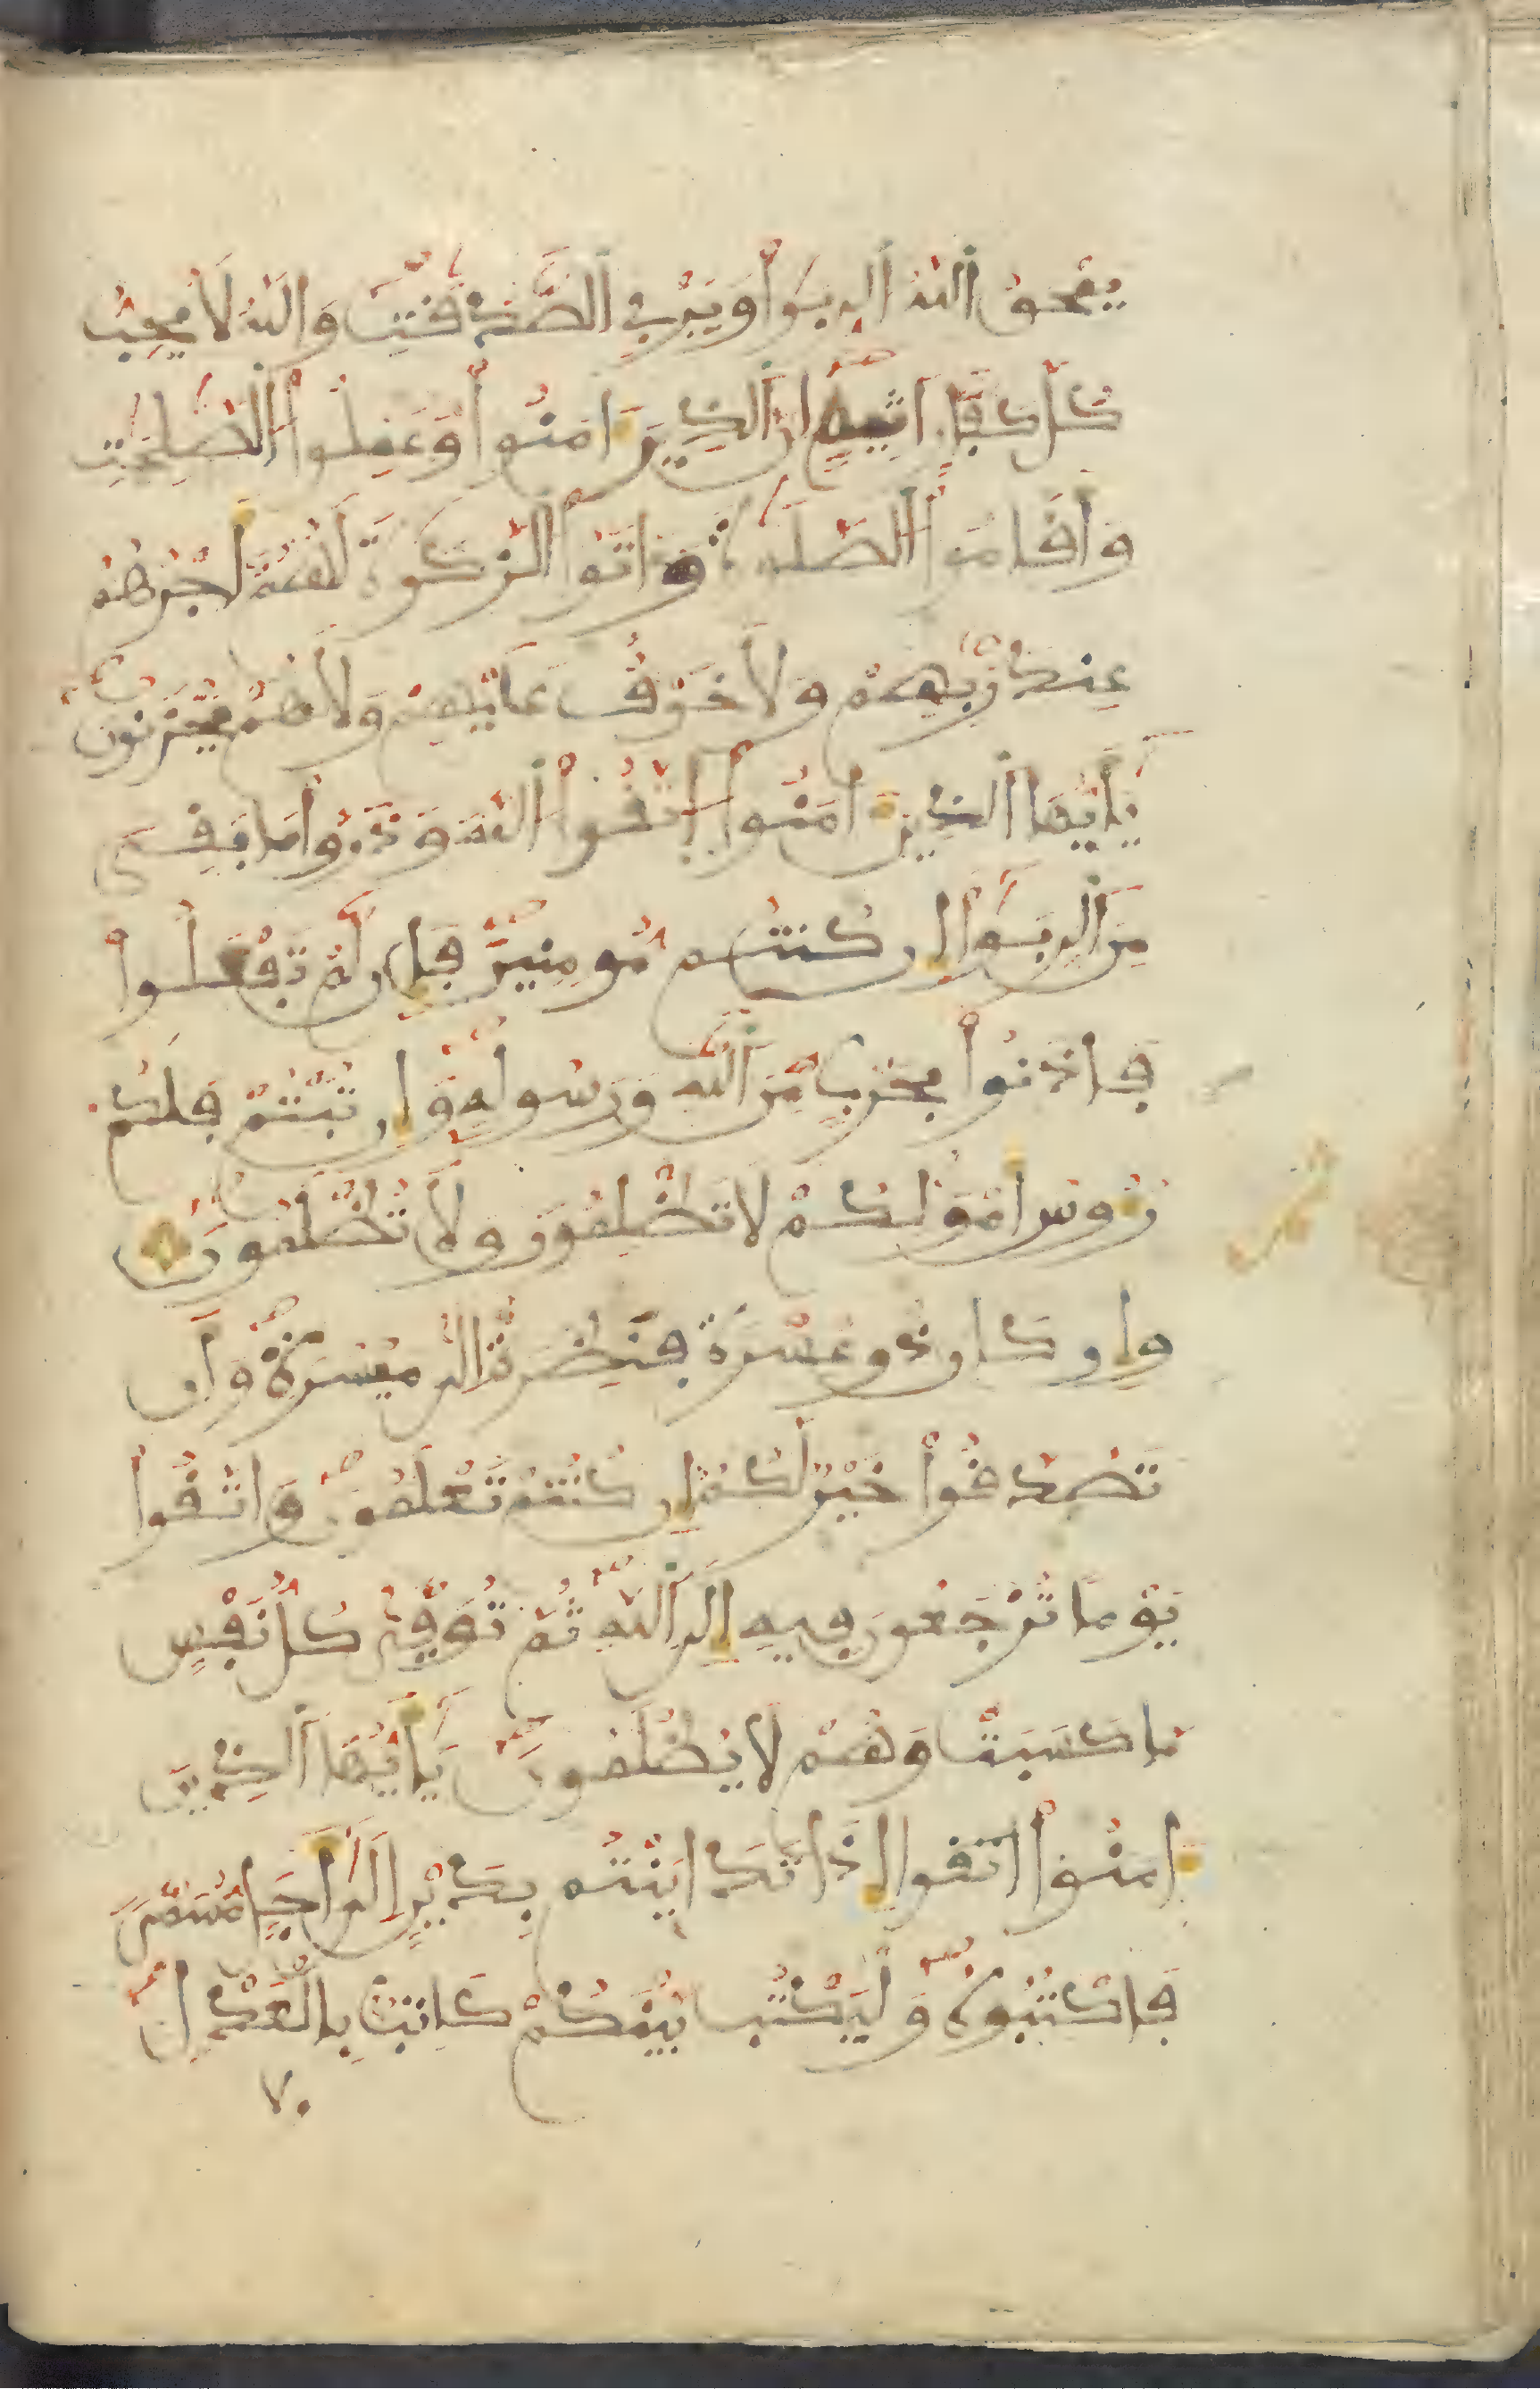 يَمْحَقُ اُللَّهُ اُلرِّبَوٰاْ وَيُرْبِے اِلصَّدَقَٰتِ وَاللَّهُ لَا يُحِبُّ
كُلَّ كَفّٰارٍ اَثِيمٍ اِنَّ اَلذِينَ ءَامَنُواْ وَعَمِلُواْ اُلصَّٰلِحَٰتِ
وَأَقَامُواْ اُلصَّلَوٰةَ وَءَاتَوُاْ اُلزَّكَوٰةَ لَهُمُۥٓ أَجْرُهُمْ
عِندَ رَبِّهِمْ وَلَا خَوْفٌ عَلَيْهِمْ وَلَا هُمْ يَحْزَنُونَ
يَٰٓأَيُّهَا اَلذِينَ ءَامَنُواْ اُتَّقُواْ اُللَّهَ وَذَرُواْ مَا بَقِىَ
مِنَ اَلرِّبَوٰاْ إِن كُنتُم مُّومِنِينَ فَإِن لَّمْ تَفْعَلُواْ
فَاذَنُواْ بِحَرْبٍ مِّنَ اَللَّهِ وَرَسُولِهِ وَإِن تُبْتُمْ فَلَكُمْ
رُءُوسُ أَمْوَٰلِكُمْ لَا تَظْلِمُونَ وَلَا تُظْلَمُونَ
وَإِن كَانَ ذُو عُسْرَةٍ فَنَظِرَةٌ اِلَىٰ مَيْسُرَةٍ وَأَن
تَصَّدَّقُواْ خَيْرٌ لَّكُمُۥٓ إِن كُنتُمْ تَعْلَمُونَ وَاتَّقُواْ
يَوْماً تُرْجَعُونَ فِيهِ إِلَى اَللَّهِ ثُمَّ تُوَفّٰىٰ كُلُّ نَفْسٍ
مَّا كَسَبَتْ وَهُمْ لَا يُظْلَمُونَ يَٰٓأَيُّهَا اَلذِينَ
ءَامَنُواْ إِذَا تَدَايَنتُم بِدَيْنٍ اِلَىٰٓ أَجَلٍ مُّسَمّىً
فَاكْتُبُوهُ وَلْيَكْتُب بَّيْنَكُمْ كَاتِبٌ بِالْعَدْلِ
٧٠